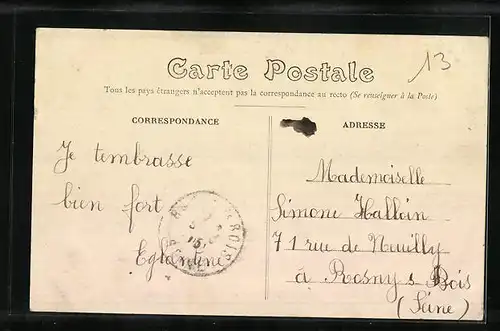 13
Carte Postale
Tous les pays étrangers n'acceptent pas la correspondance au recto (Se renseigner à la Poste)
CORRESPONDANCE
ADRESSE
Je tembrasse
bien fort
Eglantine
Mademoiselle
Simone Halloin
71 rue de Neuilly
à Rosny s Bois
(Seine)